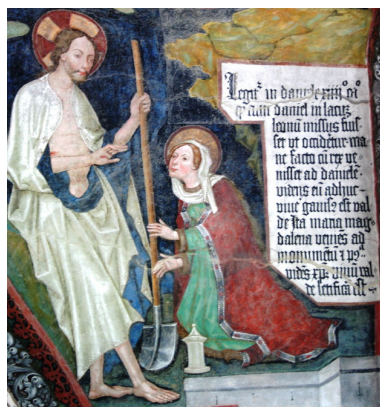 Legit᷑ in daniele xiiij° c°
cum daniel in lacum
leonū missus fuis
set ut occideret᷑ ma
ne facto cū rex ve
nisset ad daniele
videns eū adhuc
vivē gavisus est val
de Ita maria mag
dalena veniēs ad
monumētū
vidēs xp̄m vivū val
de letificata est